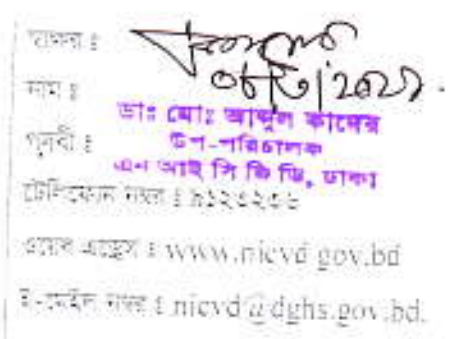 স্বাক্ষর ঃ
নাম ঃ
ডাঃ মোঃ আব্দুল কাদের
পদবী ঃ
উপ-পরিচালক
এন আই সি ভি ডি, ঢাকা
টেলিফোন নম্বর ঃ
ওয়েব এড্রেস ঃ www.nicvd gov.bd
ই-মেইল নম্বর ঃ nicvd@dghs.gov.bd.